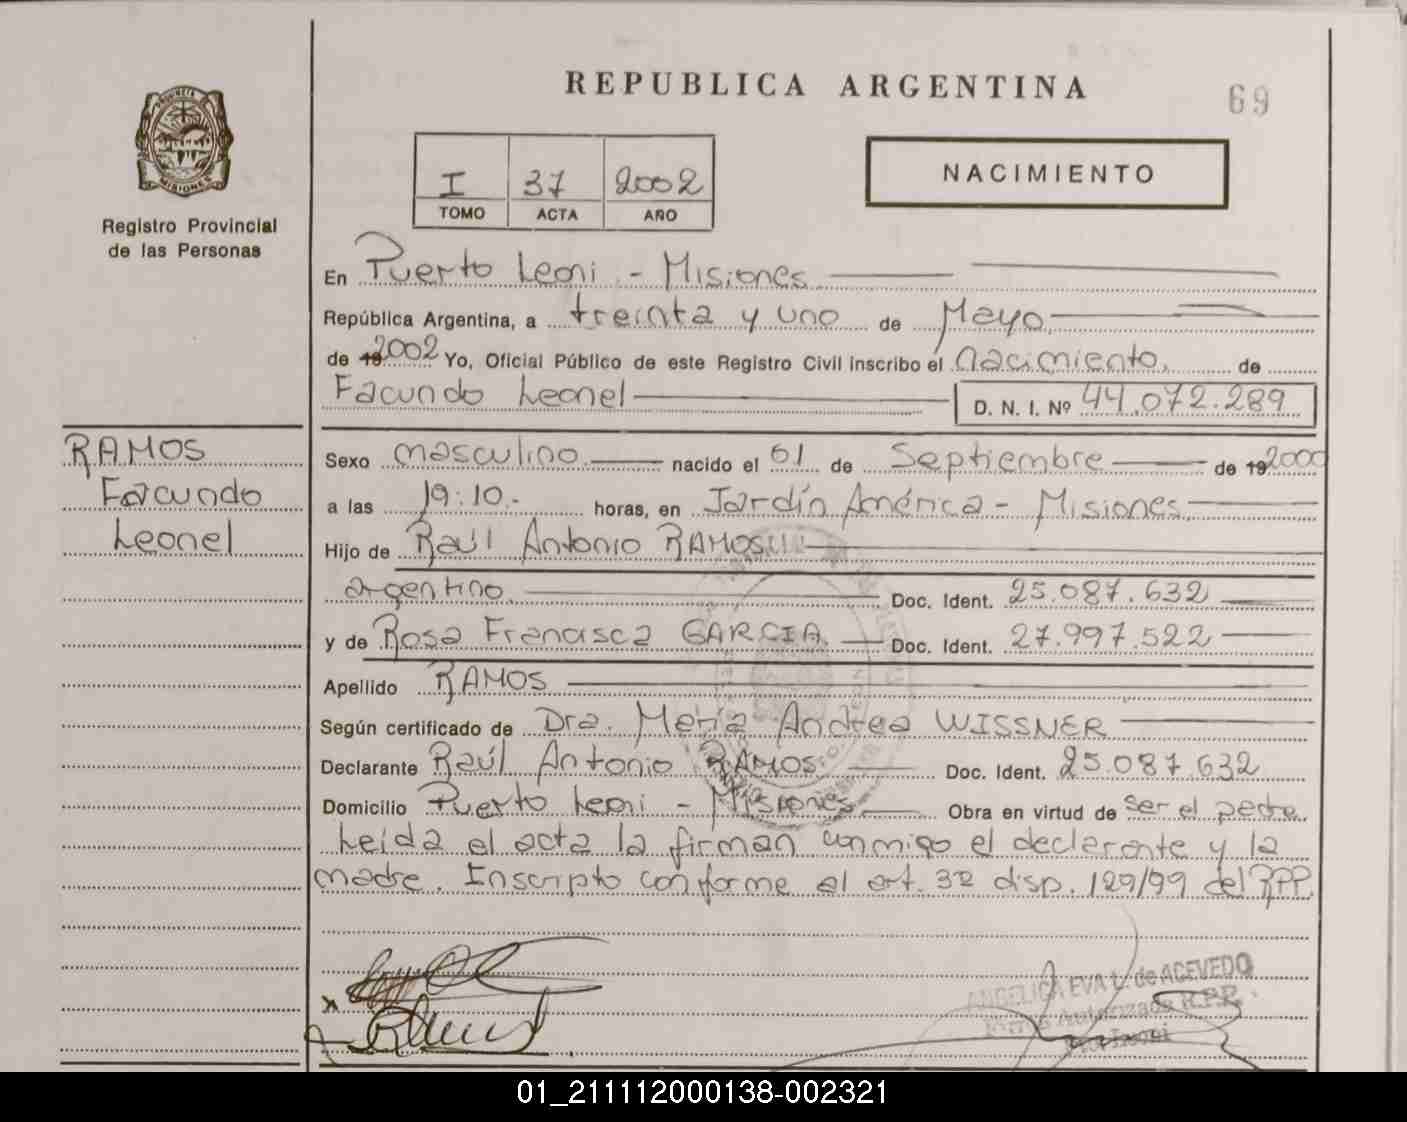 REPUBLICA ARGENTINA
69
PROVINCIA DE
MISIONES
Registro Provincial
de las Personas
I 37 2002
TOMO ACTA AÑO
NACIMIENTO
En Puerto Leoni - Misiones
República Argentina, a treinta y uno de Mayo
de 19 2002 Yo, Oficial Público de este Registro Civil inscribo el nacimiento, de
Facundo Leonel D. N. I. Nº 44.072.289
RAMOS
Facundo
Leonel
Sexo masculino nacido el 01 de Septiembre de 19 2000
a las 19:10.- horas, en Jardín América - Misiones
Hijo de Raúl Antonio RAMOS
argentino. Doc. Ident. 25.087.632
y de Rosa Francisca GARCIA Doc. Ident. 27.997.522
Apellido RAMOS
Según certificado de Dra. María Andrea WISSNER
Declarante Raúl Antonio RAMOS Doc. Ident. 25.087.632
Domicilio Puerto Leoni - Misiones Obra en virtud de ser el padre
Leída el acta la firman conmigo el declarante y la
madre. Inscripto conforme al art. 32 disp. 129/99 del RPP.
ANGELICA EVA L. de ACEVEDO
Autorizada R.P.P.
Pto. Leoni
01_211112000138-002321